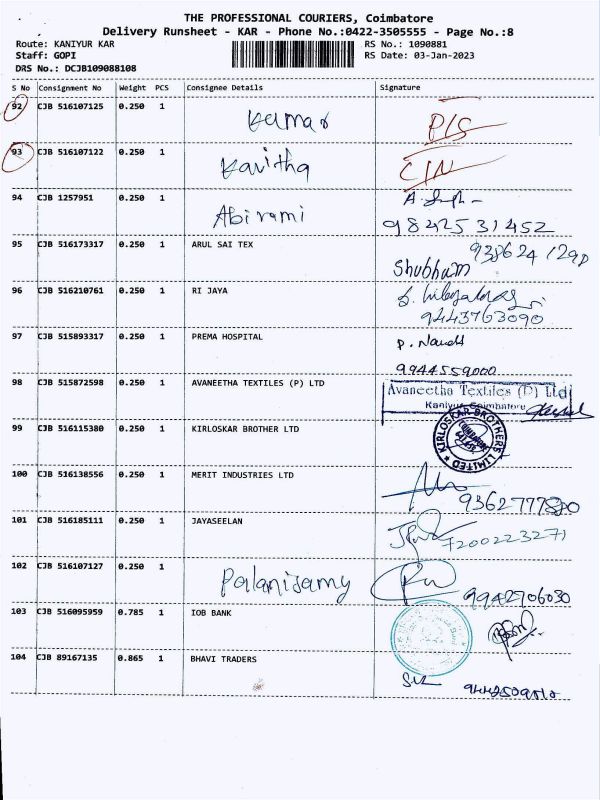 THE PROFESSIONAL COURIERS, Coimbatore
Delivery Runsheet - KAR - Phone No.:0422-3505555 - Page No.:8
Route: KANIYUR KAR RS No.: 1090881
Staff: GOPI RS Date: 03-Jan-2023
DRS No.: DCJB109088108
S No Consignment No Weight PCS Consignee Details Signature
92 CJB 516107125 0.250 1 Kumar P/S
93 CJB 516107122 0.250 1 Kavitha C/N
94 CJB 1257951 0.250 1 Abirami
9842531452
95 CJB 516173317 0.250 1 ARUL SAI TEX
Shubham
96 CJB 516210761 0.250 1 RI JAYA
9443763090
97 CJB 515893317 0.250 1 PREMA HOSPITAL
9944559000
98 CJB 515872598 0.250 1 AVANEETHA TEXTILES (P) LTD Avaneetha Textiles (P) Ltd
Kaniyur Coimbatore
99 CJB 516115380 0.250 1 KIRLOSKAR BROTHER LTD KIRLOSKAR BROTHERS LIMITED
100 CJB 516138556 0.250 1 MERIT INDUSTRIES LTD
101 CJB 516185111 0.250 1 JAYASEELAN
7200223271
102 CJB 516107127 0.250 1 Palanisamy
9942706030
103 CJB 516095959 0.785 1 IOB BANK
104 CJB 89167135 0.865 1 BHAVI TRADERS